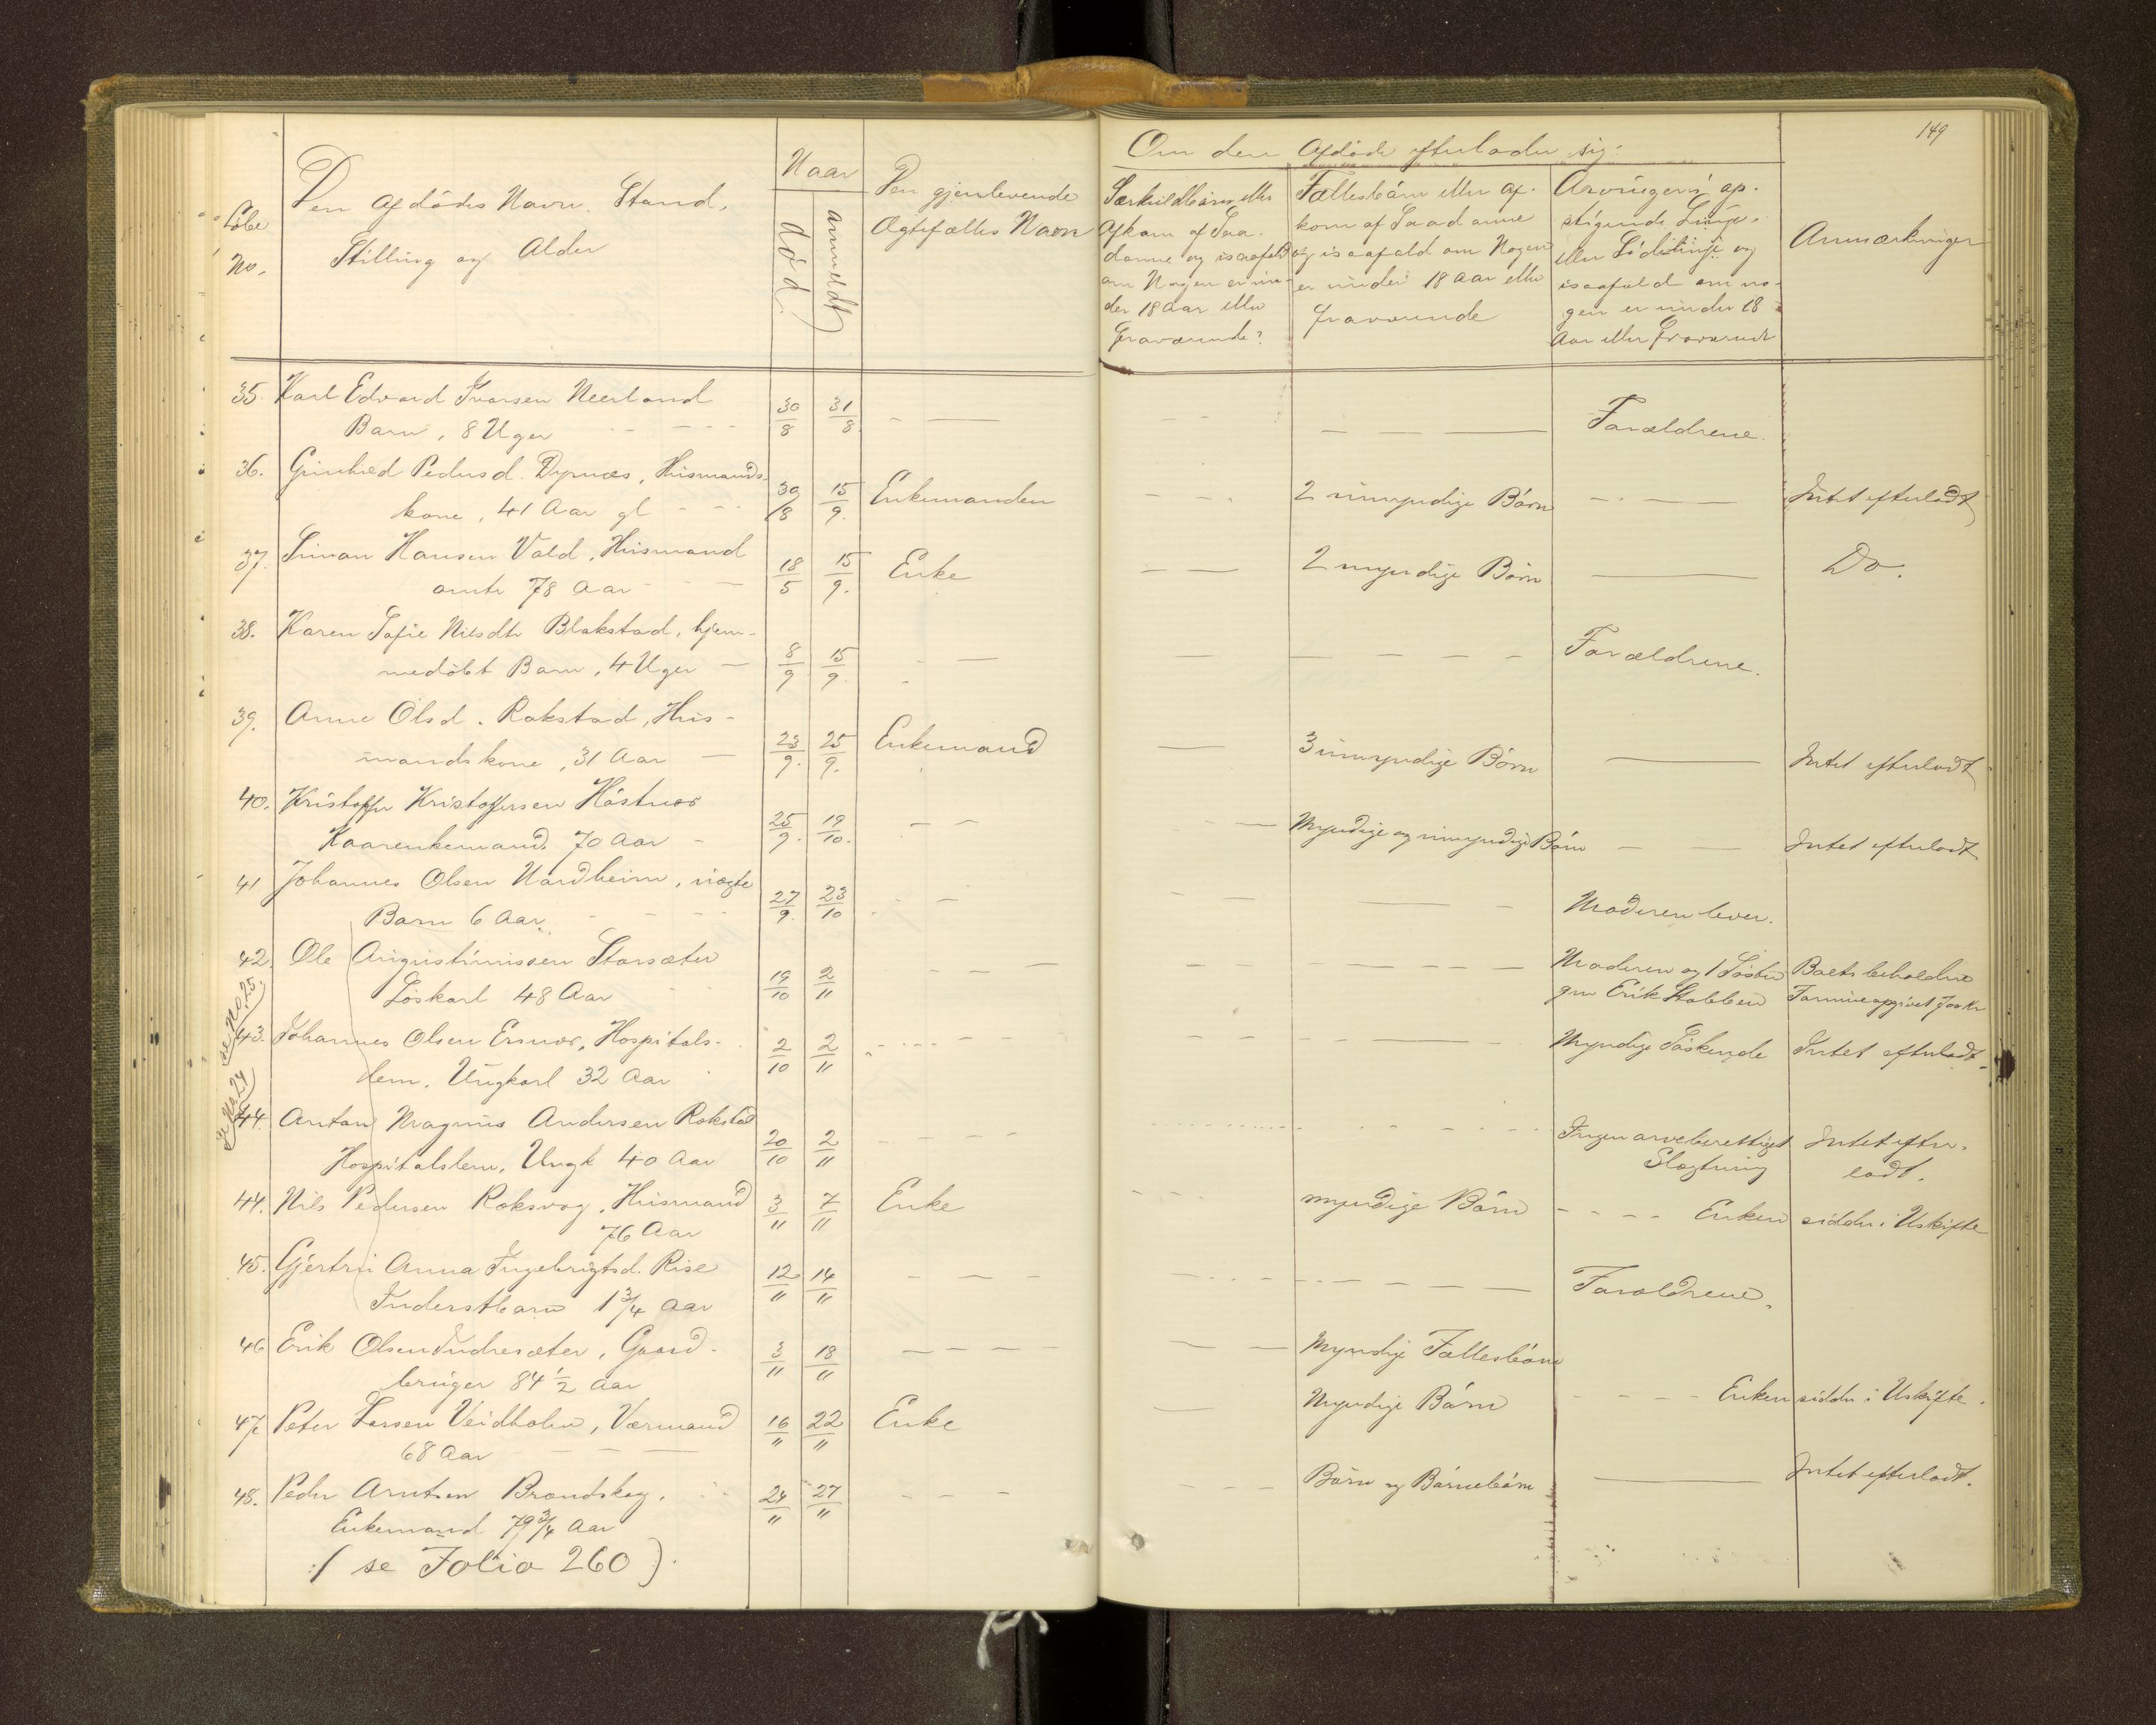 149
Løbe No.
Den Afdødes Navn. Stand,
Stilling og Alder
Naar
død
anmeldt
Den gjenlevende
Ægtefælles Navn
Om den Afdøde efterlader sig:
Særkuldbørn eller
Afkom af Saa-
danne og isaafald
om Nogen er un-
der 18 Aar eller
Fraværende?
Fællesbørn eller Af-
kom af Saadanne
og isaafald om Nogen
er under 18 Aar eller
fraværende
Arvinger i op-
stigende Linje
eller Sidelinje og
isaafald om no-
gen er under 18
Aar eller Fraværende
Anmærkninger
35. Karl Edvard Ivarsen Neerland 30/8 31/8 Forældrene.
Barn, 8 Uger
36. Gunhild Pedersd. Dyrnæs, Husmands- 30/8 15/9. Enkemanden 2 umyndige Børn Intet efterladt
kone, 41 Aar gl
37. Simon Hansen Vold, Husmand 18/5 15/9. Enke 2 myndige Børn Do.
omtr 78 Aar
38. Karen Sofie Nilsdtr Blakstad, hjem- 8/9 15/9. Forældrene.
medøbt Barn, 4 Uger
39. Anne Olsd. Rokstad, Hus- 23/9. 25/9. Enkemand 3 umyndige Børn Intet efterladt
mandskone, 31 Aar
40. Kristoffer Kristoffersen Høstnær 25/9. 19/10. Myndige og umyndige Børn Intet efterladt
Kaarenkemand 70 Aar
41 Johannes Olsen Nordheim, uægte 27/9. 23/10 Moderen lever.
Barn 6 Aar.
42. Ole Augustinussen Storsæter 19/10 2/11 Moderen og 1 Søster Boets beholdne
Løskarl 48 Aar gm Erik Stabben Formue opgivet
se No. 25.
43. Johannes Olsen Ersnær, Hospitals- 2/10 2/11 Myndige Søskende Intet efterladt
lem. Ungkarl 32 Aar
se No 24
44. Anton Magnus Andersen Rokstad 20/10 2/11 Ingen arveberettiget Intet efter-
Hospitalslem, Ungk 40 Aar Slægtning ladt.
44. Nils Pedersen Roksvog, Husmand 3/11 7/11 Enke myndige Børn Enken sidder i Uskifte
76 Aar
45. Gjertru Anna Ingebrigtsd. Rise 12/11 14/11 Forældrene.
Inderstbarn 1 3/4 Aar
46 Erik Olsen Indresæter, Gaard- 3/11 18/11 Myndige Fællesbørn
bruger 84 1/2 Aar
47. Peter Larsen Veidholm, Værmand 16/11 22/11 Enke Myndige Børn Enken sidder i Uskifte.
68 Aar
48. Peder Arntsen Brandskog. 24/11 27/11 Børn og Børnebørn Intet efterladt.
Enkemand 79 3/4 Aar
( se Folio 260 ).